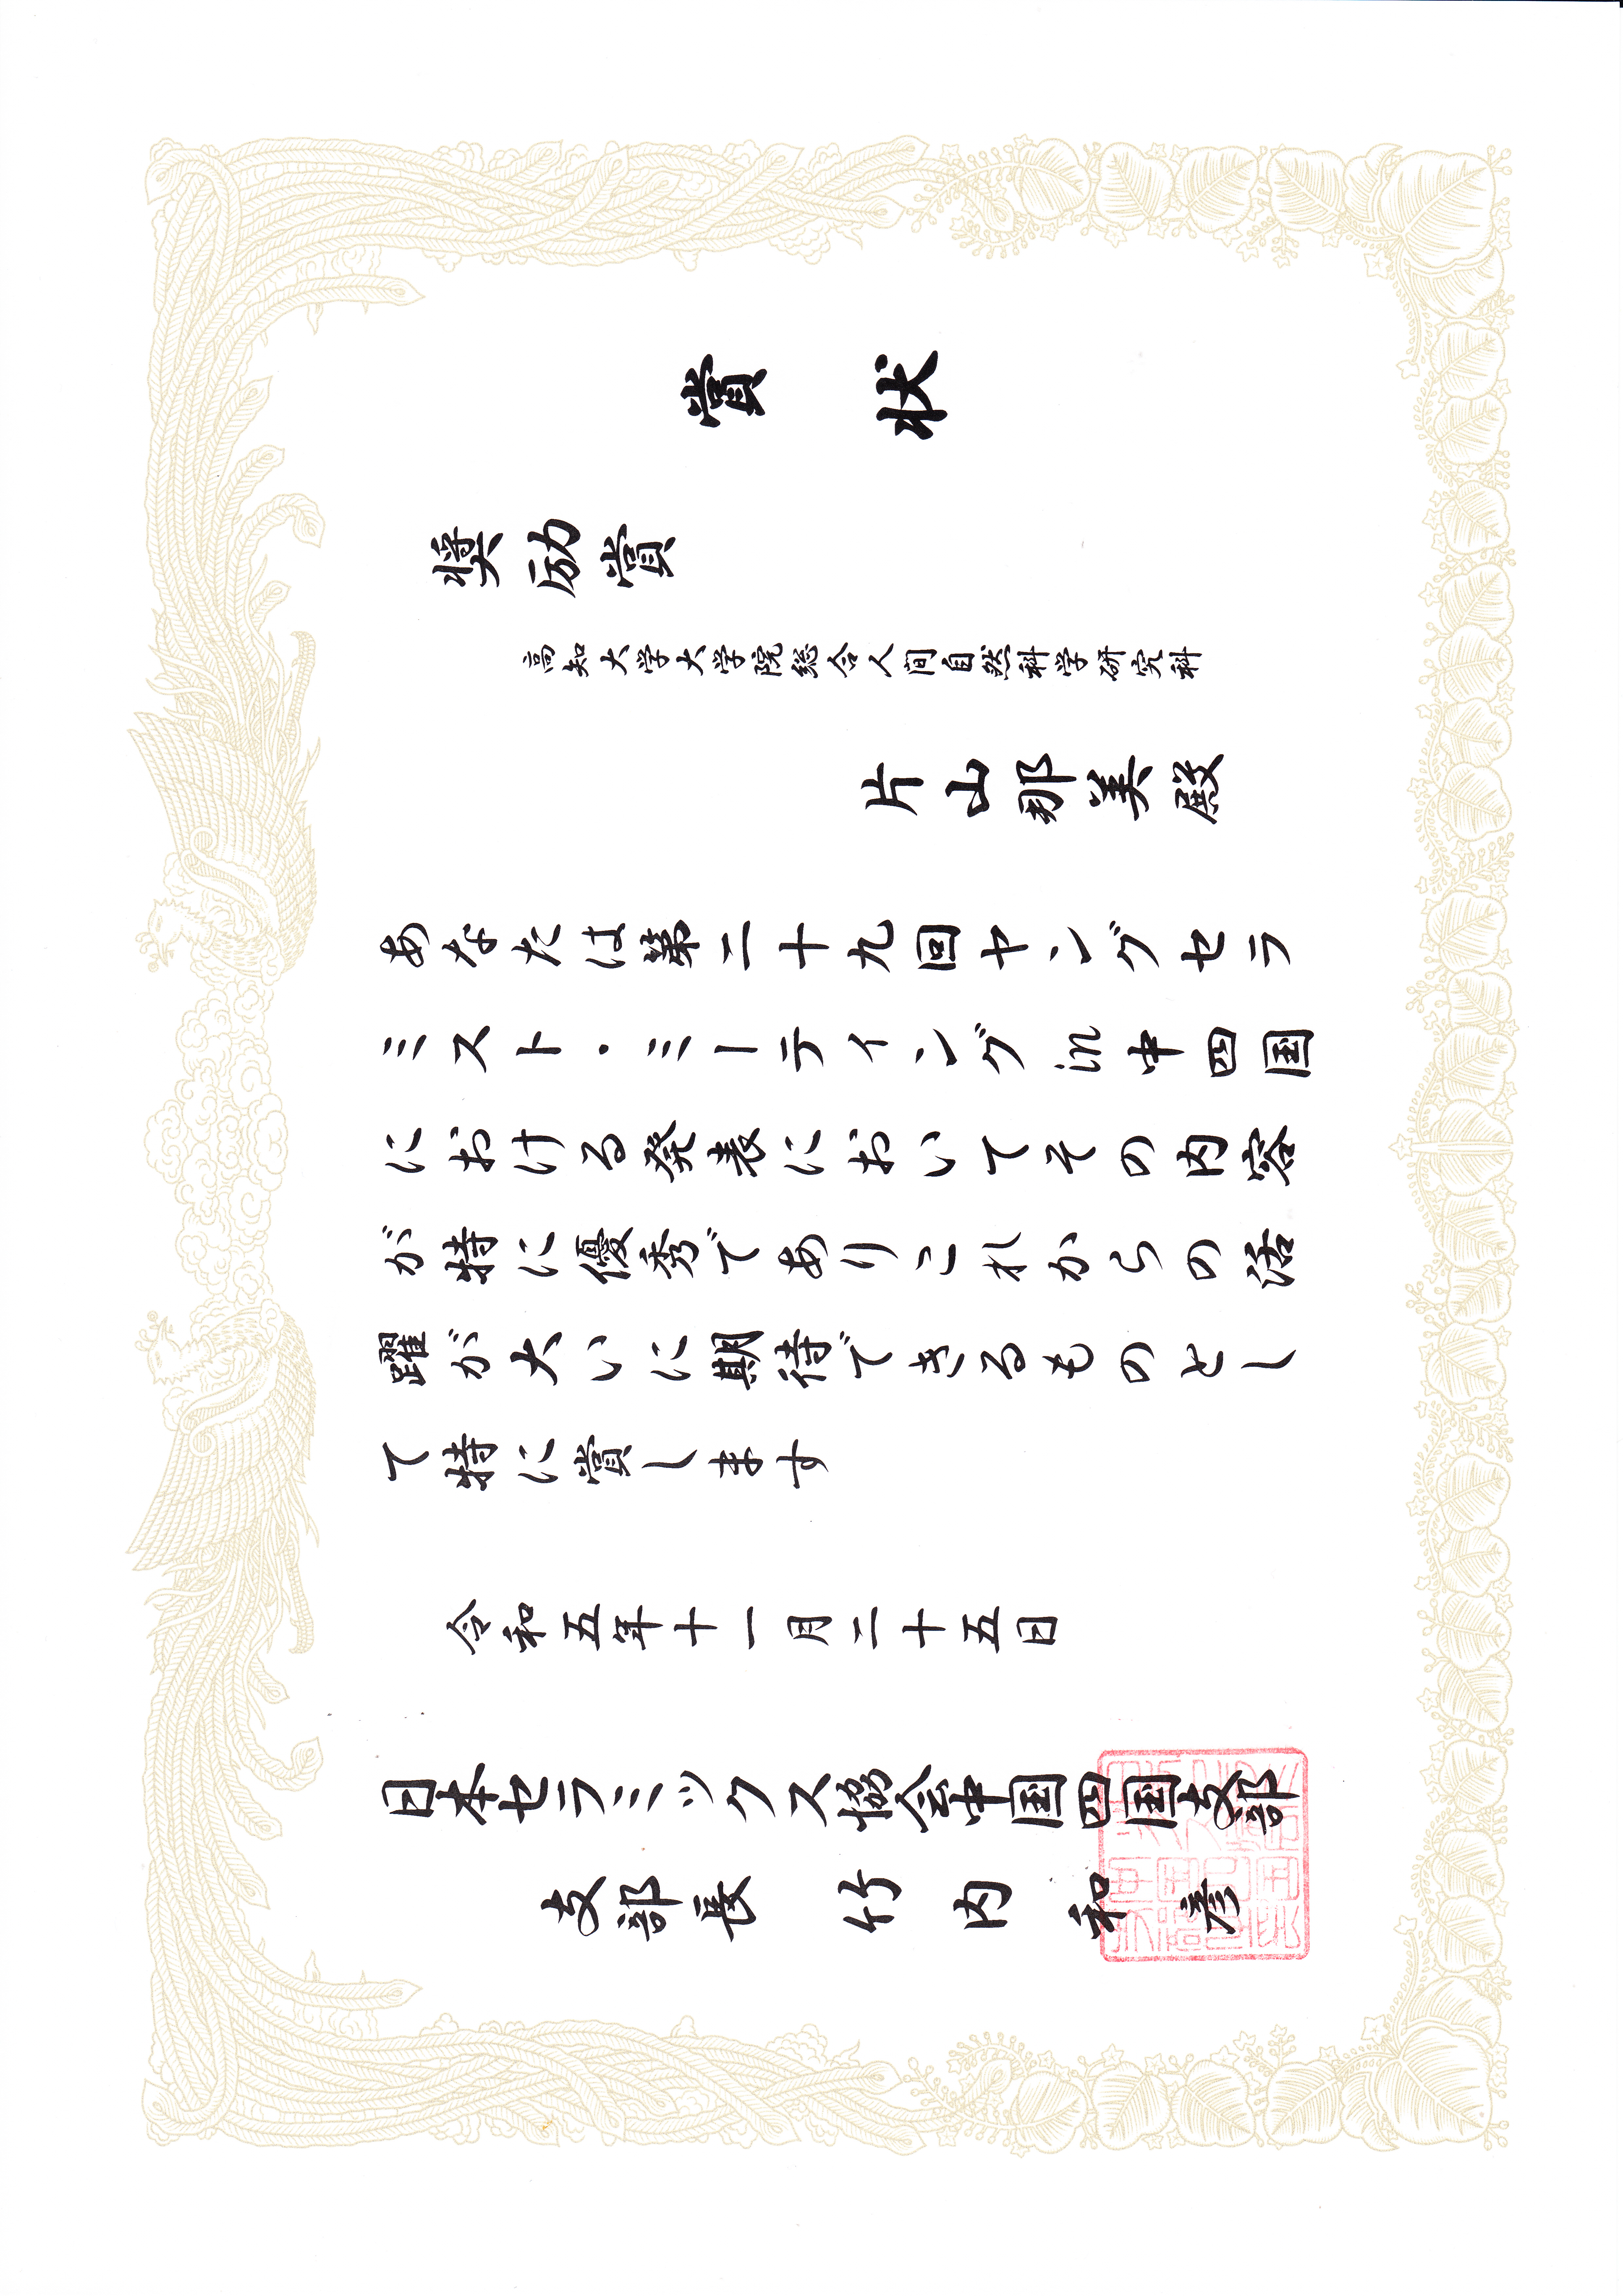 賞状
奨励賞
高知大学大学院総合人間自然科学研究科
片山那美殿
あなたは第二十九回ヤングセラ
ミスト・ミーティングin中四国
における発表においてその内容
が特に優秀でありこれからの活
躍が大いに期待できるものとし
て特に賞します
令和五年十一月二十五日
日本セラミックス協会中国四国支部
支部長 竹内和彦